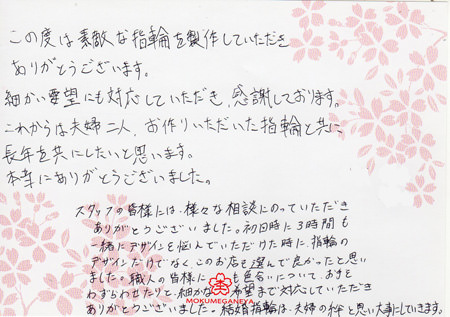 この度は素敵な指輪を製作していただき
ありがとうございます。
細かい要望にも対応していただき、感謝しております。
これからは夫婦二人、お作りいただいた指輪と共に
長年を共にしたいと思います。
本当にありがとうございました。
スタッフの皆様には、様々な相談にのっていただき
ありがとうございました。初回時に3時間も
一緒にデザインを悩んでいただけた時に、指輪の
デザインだけでなく、このお店を選んで良かったと思い
ました。職人の皆様に も色合いについて、お手を
わずらわせたりと、細かな 希望まで対応していただき
ありがとうございました。結婚指輪は、夫婦の絆と思い大事にしていきます。
MOKUMEGANEYA